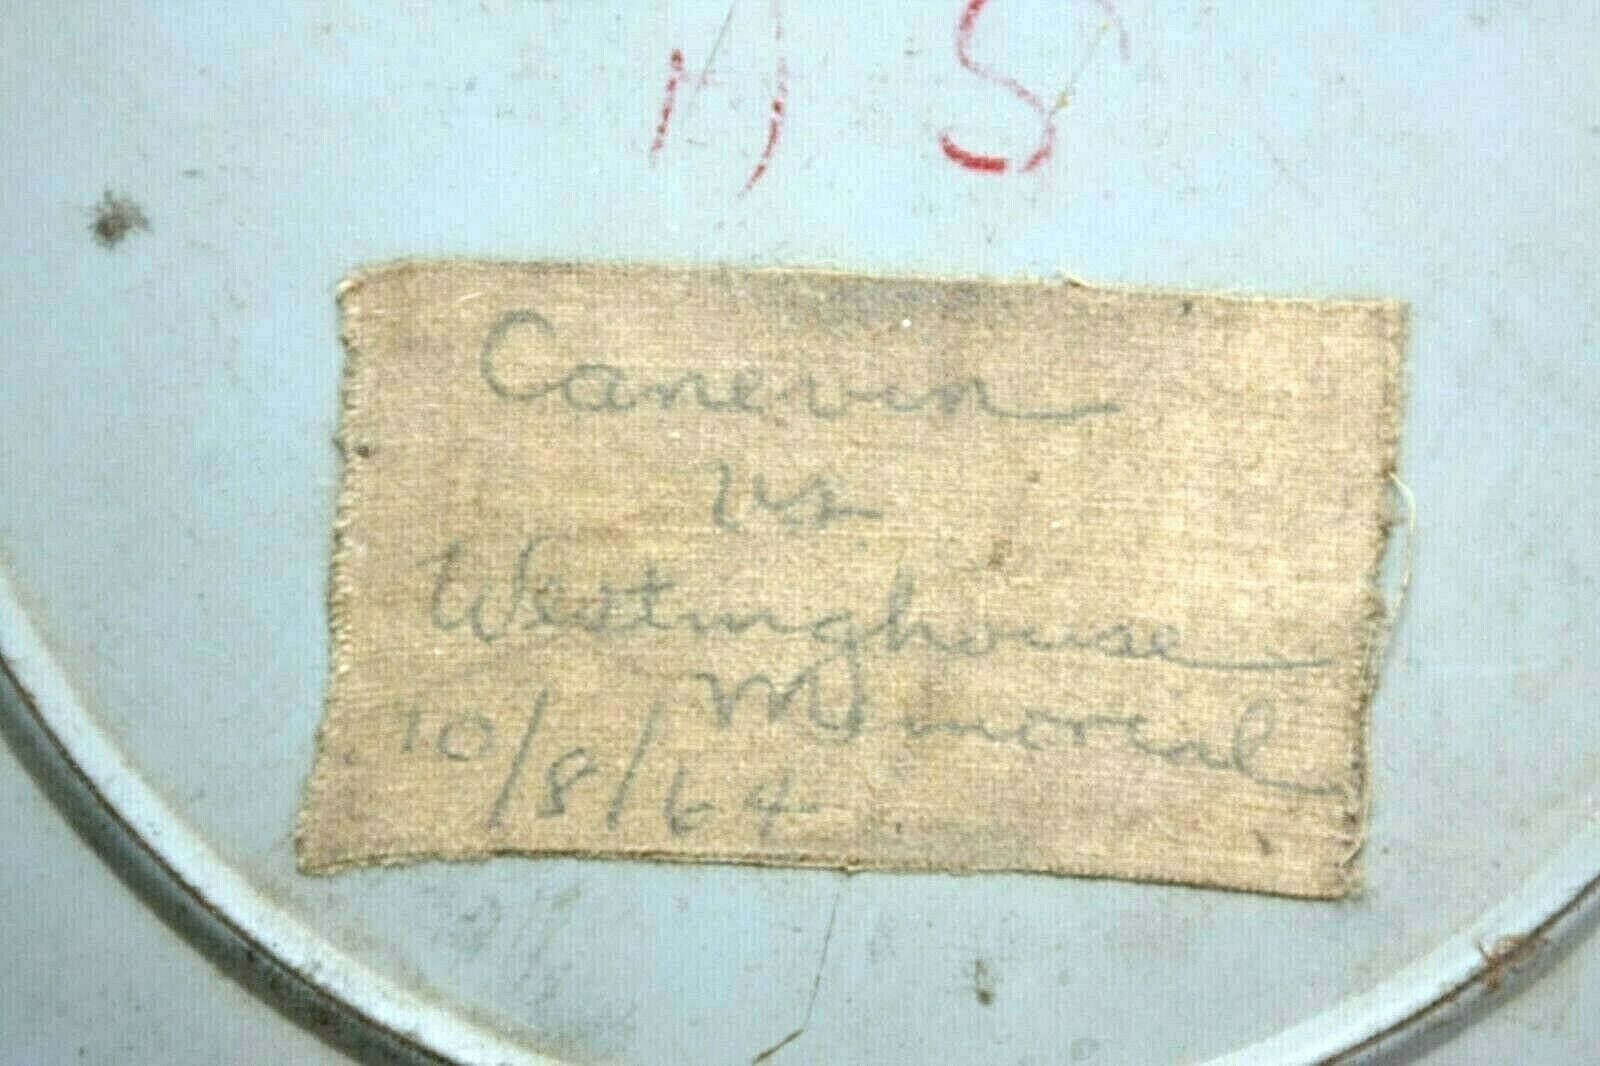 HS
Canevin
vs
Westinghouse
Memorial
10/8/64